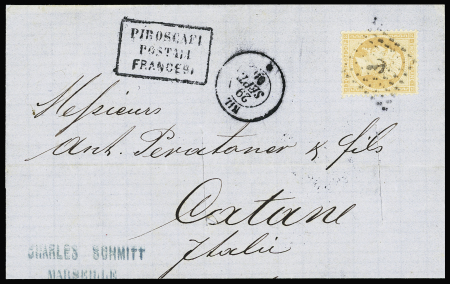 PIROSCAFI
POSTALI
FRANCESI
NIL
29
SEPT.
Messieurs
Ant. Peratoner & fils
Catane
Italie
CHARLES SCHMITT
MARSEILLE